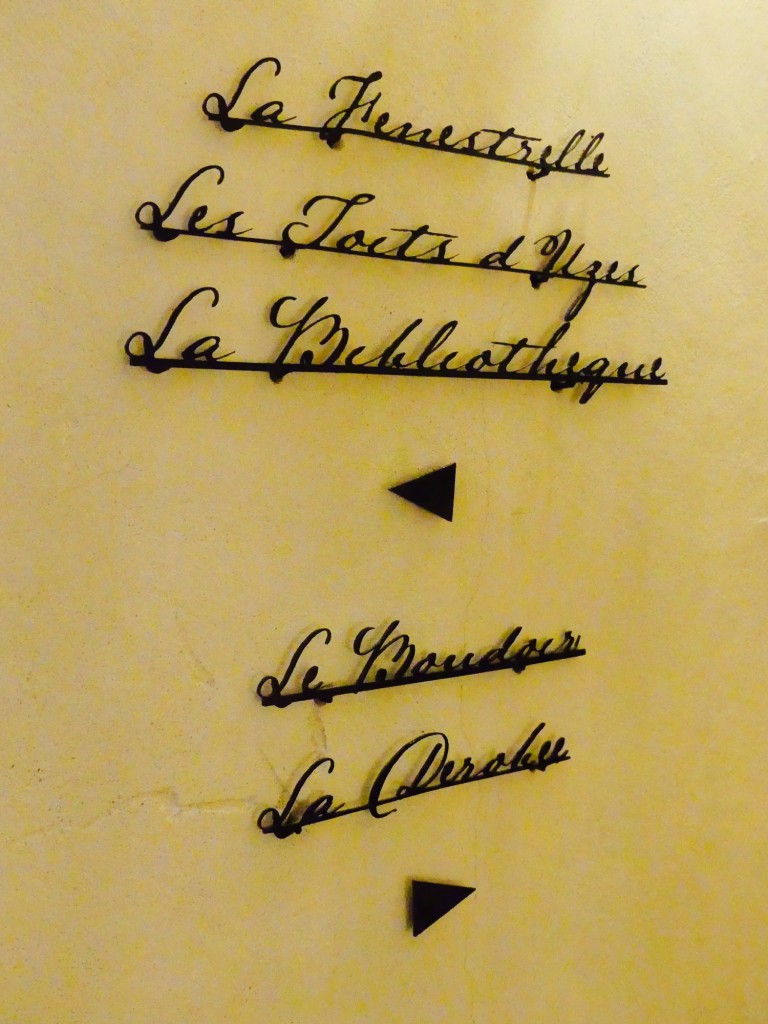 La Fenestrelle
Les Toits d Uzes
La Bibliotheque
Le Boudoir
La Derobee